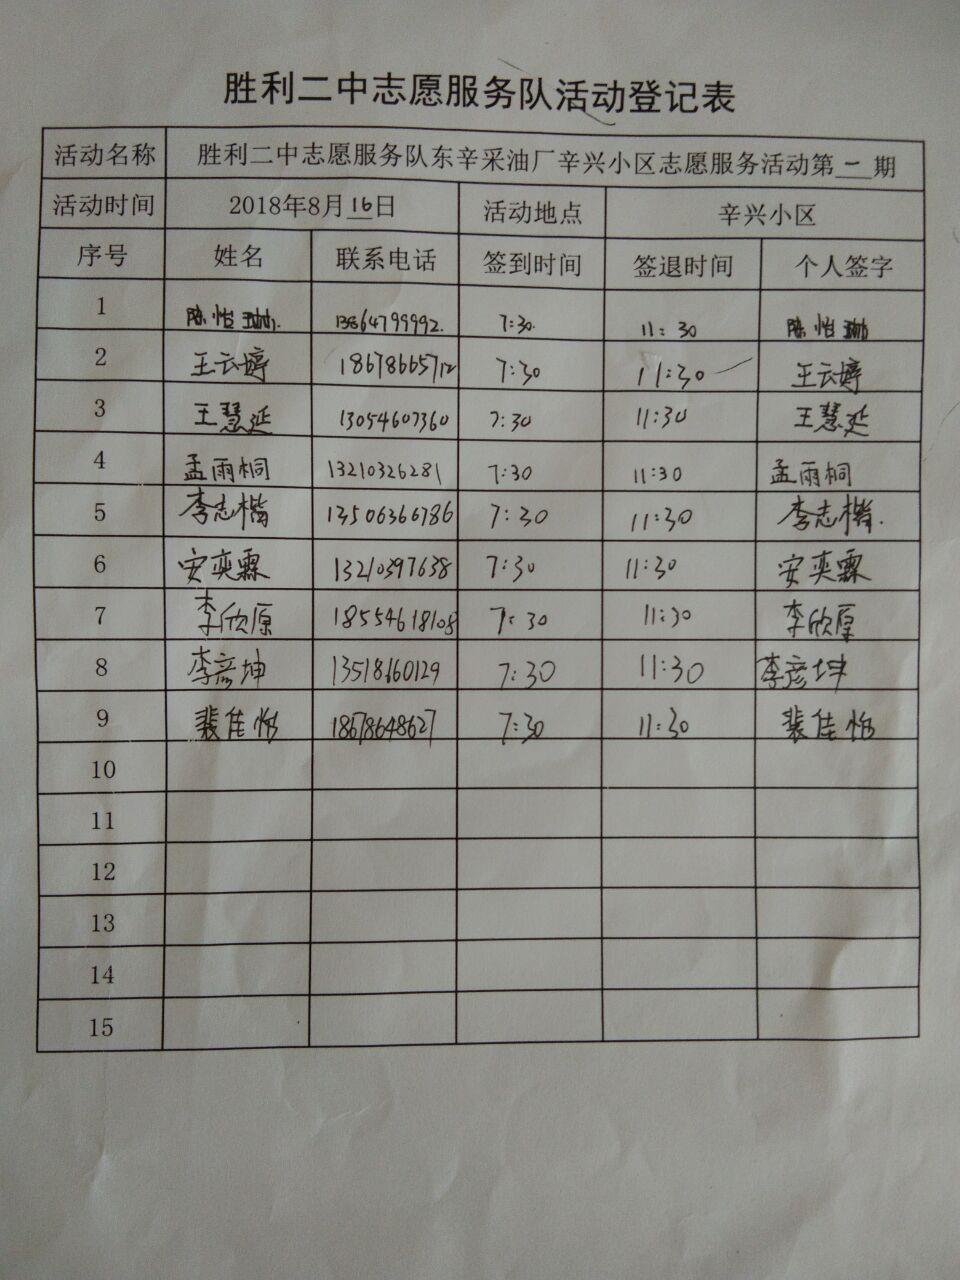 胜利二中志愿服务队活动登记表
活动名称 胜利二中志愿服务队东辛采油厂辛兴小区志愿服务活动第一期
活动时间 2018年8月16日 活动地点 辛兴小区
序号 姓名 联系电话 签到时间 签退时间 个人签字
1 陈怡珊 13864799992 7:30 11:30 陈怡珊
2 王云婷 18678665712 7:30 11:30 王云婷
3 王慧延 13054607360 7:30 11:30 王慧延
4 孟雨桐 13210326281 7:30 11:30 孟雨桐
5 李志楷 13506366786 7:30 11:30 李志楷
6 安奕霖 13210397638 7:30 11:30 安奕霖
7 李欣原 18554618108 7:30 11:30 李欣原
8 李彦坤 13518660129 7:30 11:30 李彦坤
9 裴佳怡 18678648627 7:30 11:30 裴佳怡
10
11
12
13
14
15